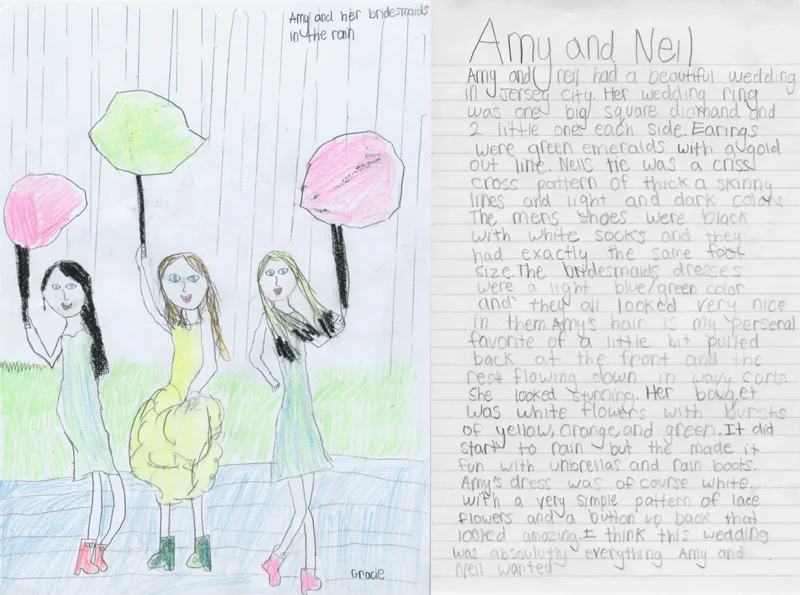 Amy and her bridesmaids
in the rain
Gracie
Amy and Neil
Amy and neil had a beautiful wedding
in Jersey city. Her wedding ring
was one big square diomand and
2 little ones each side. Earings
were green emeralds with a gold
out line. Neils tie was a criss
cross pattern of thick a skinny
lines and light and dark colors
The mens shoes were black
with white socks and they
had exactly the same foot
size. The bridesmaids dresses
were a light blue/green color
and they all looked very nice
in them Amy's hair is my perseral
favorite of a little bit pulled
back at the front and the
rest flowing down in wavy curls.
She looked stunning. Her bouqet
was white flowers with bursts
of yellow, orange, and green. It did
start to rain but the made it
fun with unbrellas and rain boots.
Amy's dress was of course white.
with a very simple pattern of lace
flowers and a button up back that
looked amazing. I think this wedding
was absoulutly everything Amy and
Neil wanted